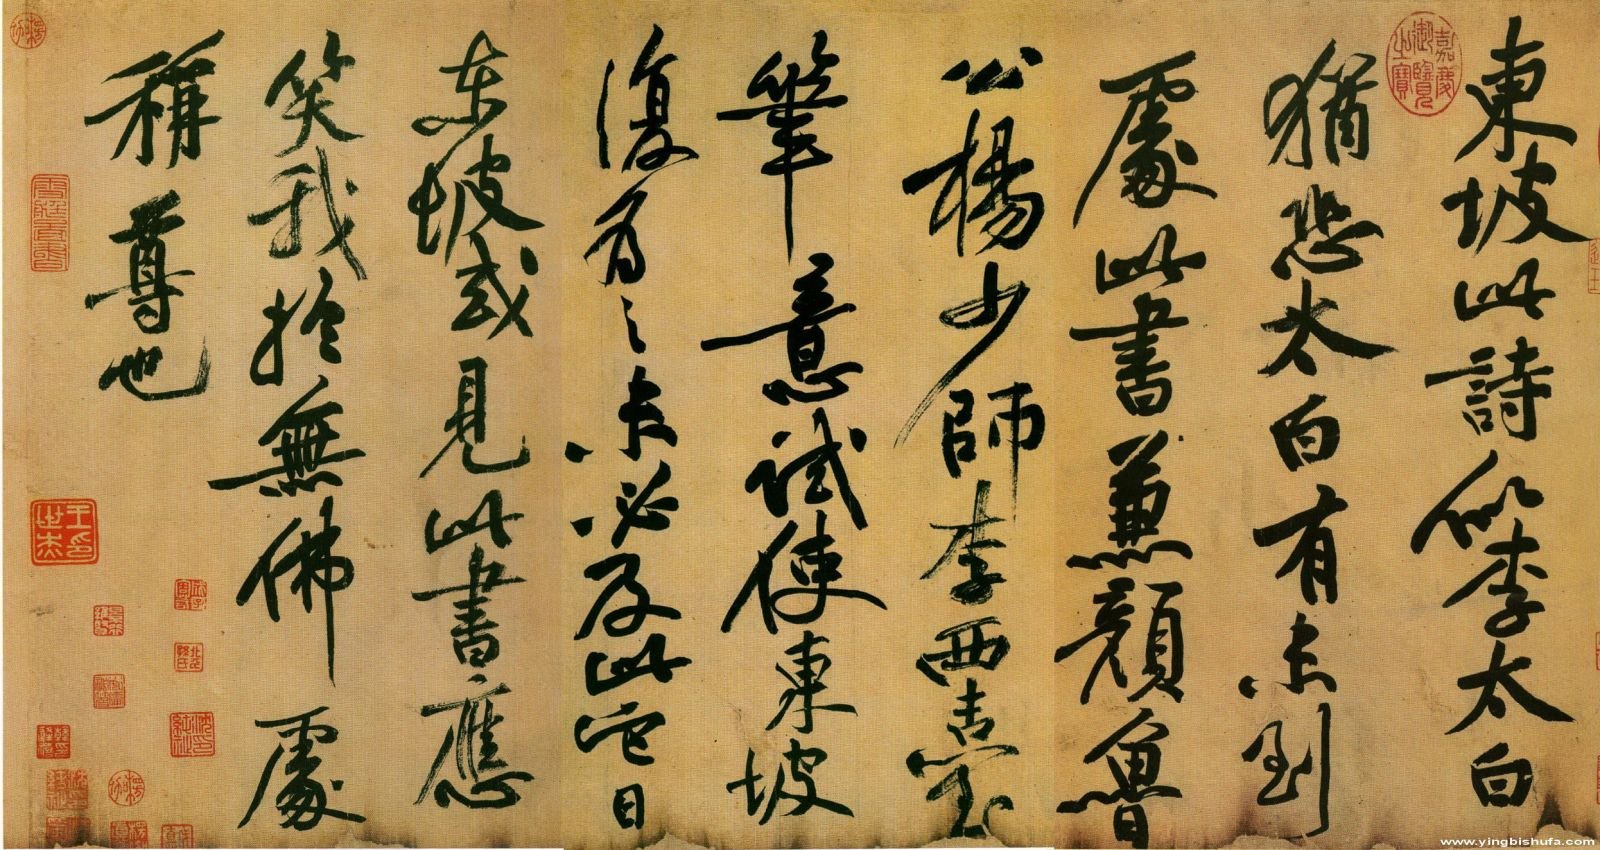 東坡此詩似李太白
猶恐太白有未到
處此書兼顏魯
公楊少師李西臺
筆意試使東坡
復為之未必及此它日
東坡或見此書應
笑我於無佛處
稱尊也
嘉慶御覽之寶
王印世杰
www.yingbishufa.com